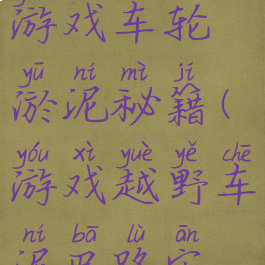 游戏车轮
yū ní mì jí
淤泥秘籍(
yóu xì yuè yě chē
游戏越野车
ní bā lù ān
泥巴路安